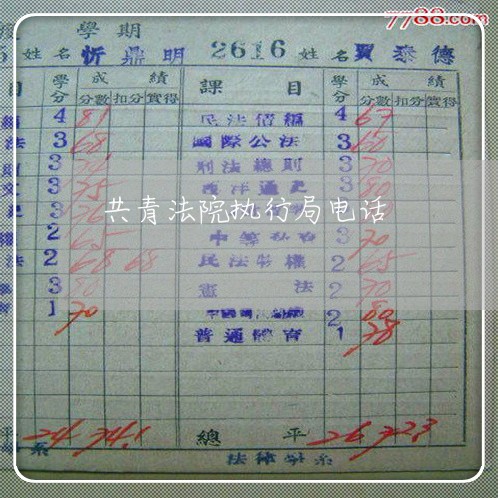 7788.com
學期
姓名 忻鼎明 2616 姓名 賈泰德
目 學分 成績 課目 學分 成績
分數 扣分 實得 分數 扣分 實得
4 81 民法債編 4 67
法 3 68 國際公法 3 60
3 刑法總則 3 70
3 75 西洋通史 3 80
共青法院执行局电话
權 2 65 中等會計 3 70
法 2 68 68 民法物權 2 65
3 80 憲法 2 70
1 70 2 80
普通體育 1 78
平 24 74.1 總平 26 72.3
系 法律學系